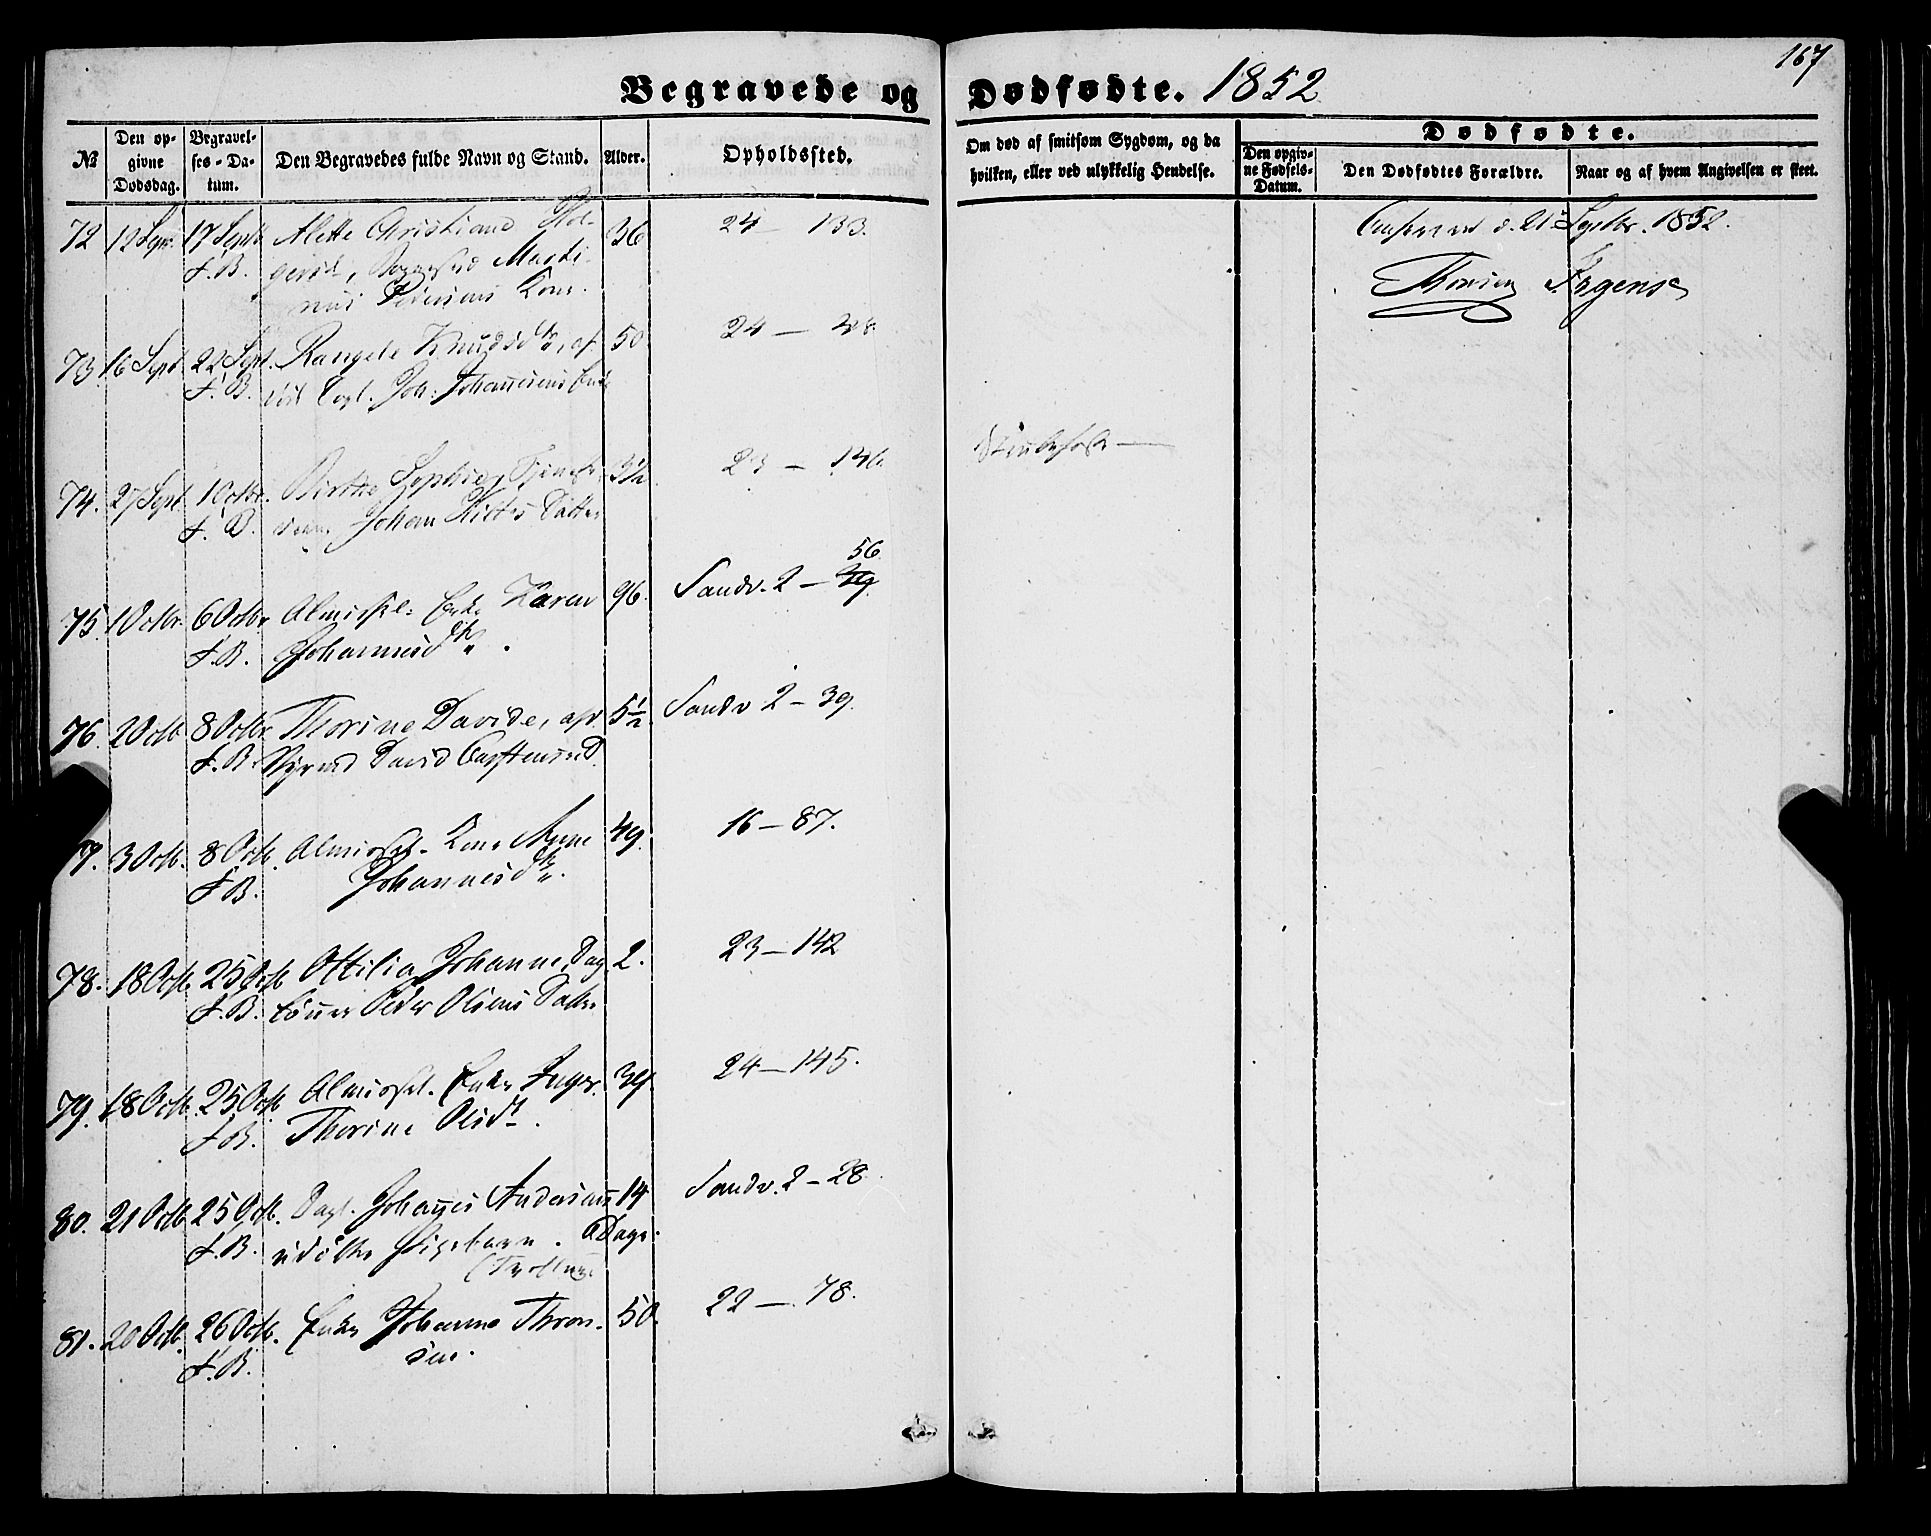 167
Begravede og Dødfødte. 1852
№
Den opgivne Dødsdag.
Begravelses-Datum.
Den Begravedes fulde Navn og Stand.
Alder.
Opholdssted.
Om død af smitsom Sygdom, og da hvilken, eller ved ulykkelig Hendelse.
Dødfødte.
Den opgivne Fødsels-Datum.
Den Dødfødtes Forældre.
Naar og af hvem Angivelsen er skeet.
72 12 Sept. 17 Septb. Alette Christiane Hol- 36 24 — 133.
F.B. Marti-
nus Pedersens Kone.
d. 21 Septbr. 1852.
73. 16 Sept. 22 Sept. Rangele Knudsdtr, 50 24 —
F.B. Joh. Johannesens Enke
74. 27 Sept. 1 Octbr. Birthe Sophie, 3½ 23 —
F.B. Johan Datter
75. 1 Octbr. 6 Octbr. Almissl. Enke Karen 96. Sandv. 2 — 56
F.B. Johannesdtr.
76. 2 Octb. 8 Octbr. Thorine Davide, afd. 5½ Sandv. 2 — 39.
F.B. David D.
3 Octb. 8 Octb. Almissl. Kone Anne 49. 16 — 87.
F.B. Johannesdtr.
78. 18 Octb. 25 Octb. Ottilia Johanne, Dag- 2. 23 — 142
F.B. Peder Olsens Datter
79. 18 Octb. 25 Octb. Almissl. Enke Inger 39. 24 — 145.
F.B. Thorine Olsdt.
80. 21 Octb. 25 Octb. Dagl. Johannes Andersens 14 Sandv. 2 — 28
F.B. udøbte Pigebarn. Dage.
81. 20 Octb. 26 Octb. Enke Johanne Thron- 50. 22 — 78.
F.B. sen.